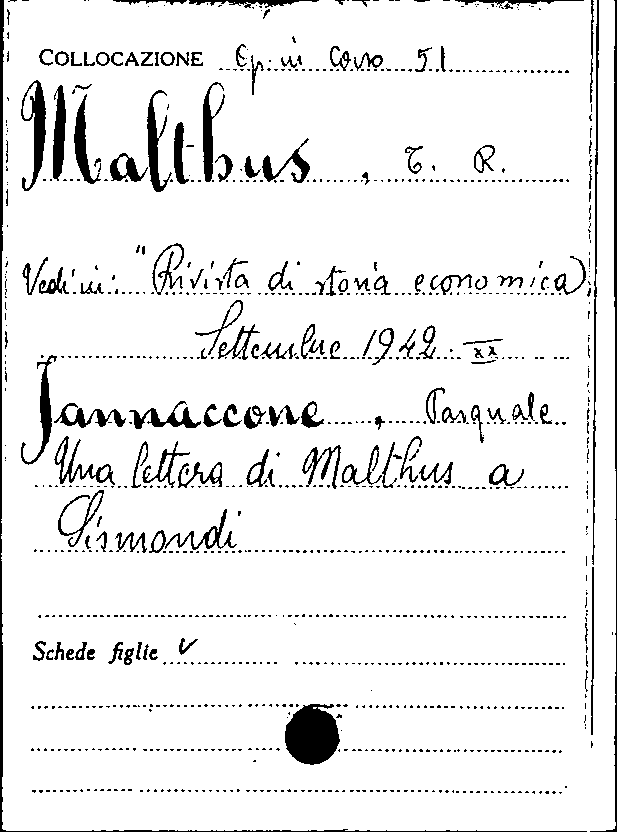 COLLOCAZIONE Ep. in Corso 51
Malthus, T. R.
Vedi in: "Rivista di storia economica)
Settembre 1942. XX
Jannaccone, Pasquale
Una lettera di Malthus a
Sismondi
Schede figlie v